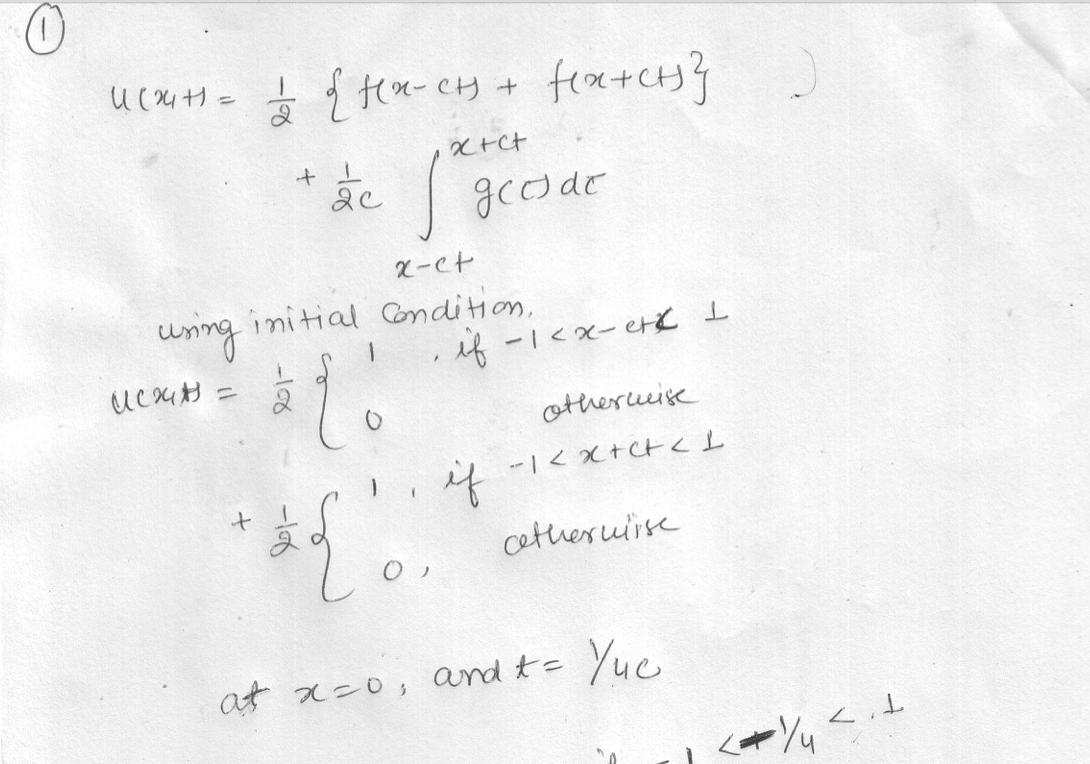 ①
u(x,t) = 1/2 { f(x-ct) + f(x+ct) }
+ 1/2c ∫_{x-ct}^{x+ct} g(τ) dτ
using initial Condition.
u(x,t) = 1/2 { 1 , if -1 < x-ct < 1
0 otherwise
+ 1/2 { 1 , if -1 < x+ct < 1
0 , otherwise
at x=0, and t= 1/4c
if -1 < 1/4 < 1